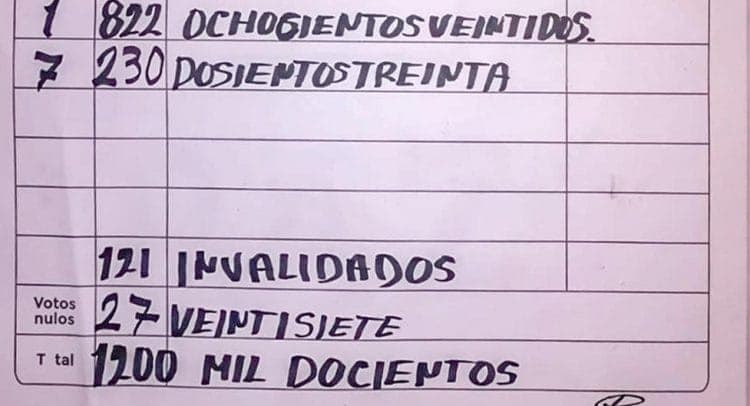 1 822 OCHOGIENTOS VEINTIDOS.
7 230 DOSIENTOS TREINTA
121 INVALIDADOS
Votos nulos 27 VEINTISIETE
T tal 1200 MIL DOCIENTOS